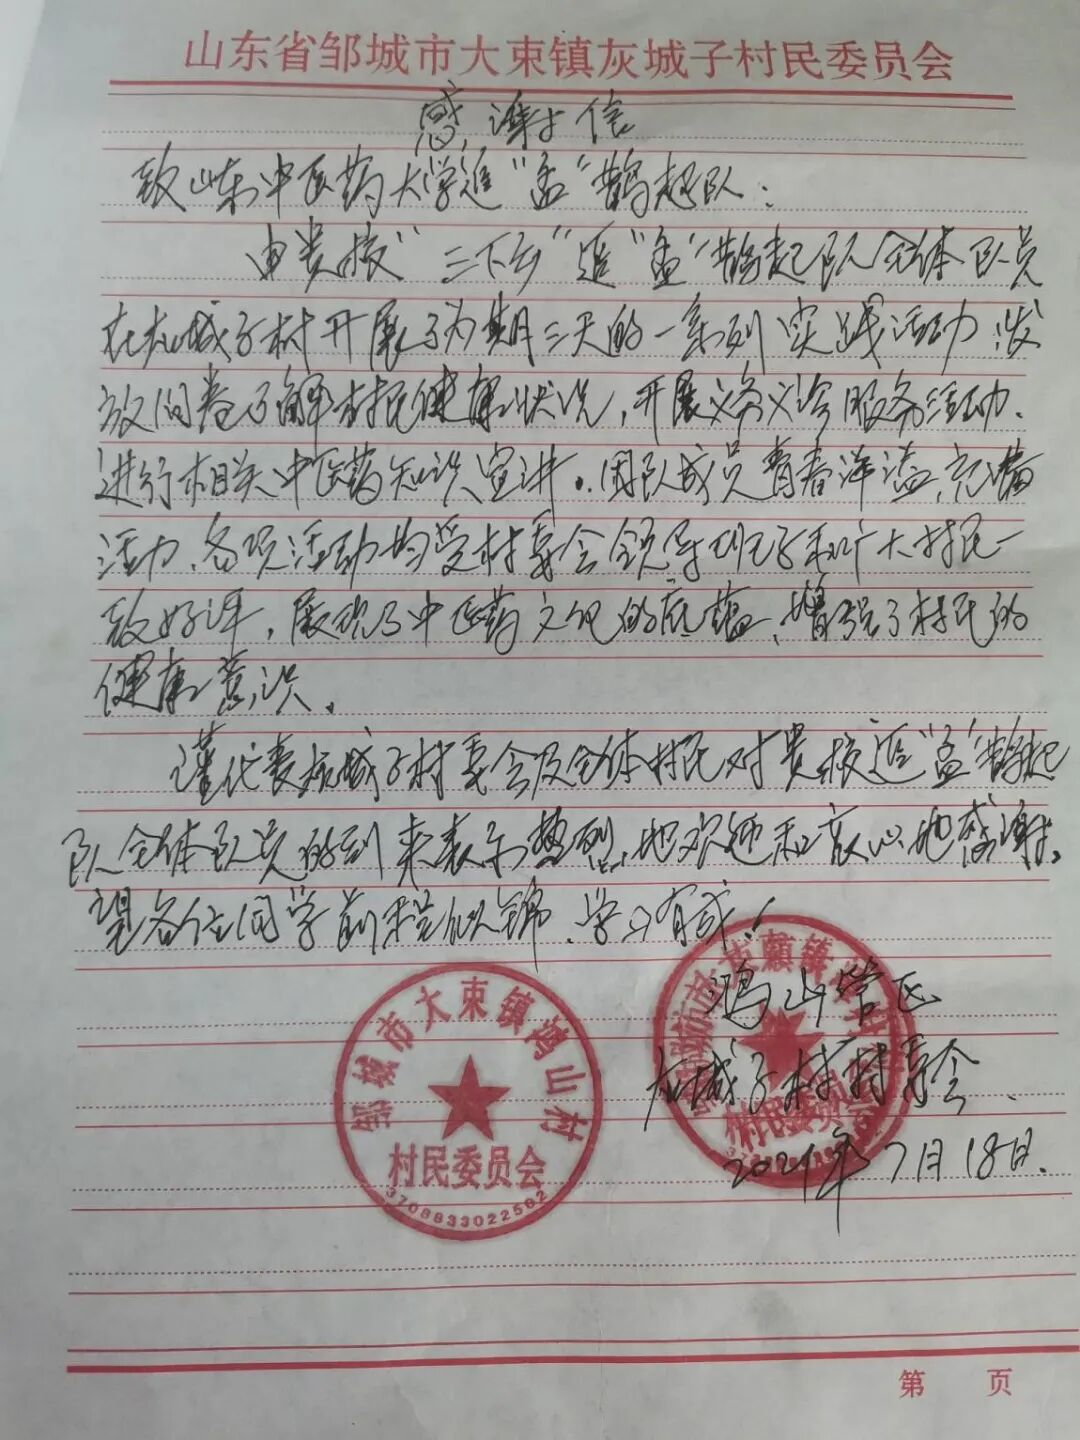 山东省邹城市大束镇灰城子村民委员会
感谢信
致山东中医药大学追“孟”鹊起队：
由贵校“三下乡”追“孟”鹊起队全体队员
在灰城子村开展了为期三天的一系列实践活动，发
放问卷了解村民健康状况，开展义务义诊服务活动、
进行相关中医药知识宣讲。团队成员青春洋溢、充满
活力、各项活动均受村委会领导班子和广大村民一
致好评，展现了中医药文化的底蕴、增强了村民的
健康意识。
谨代表灰城子村委会及全体村民对贵校追“孟”鹊起
队全体队员的到来表示热烈地欢迎和衷心地感谢。
望各位同学前程似锦、学习有成！
鸿山管区
灰城子村村委会
2021年7月18日.
邹城市大束镇鸿山村
村民委员会
3708833022582
村民委员会
第 页